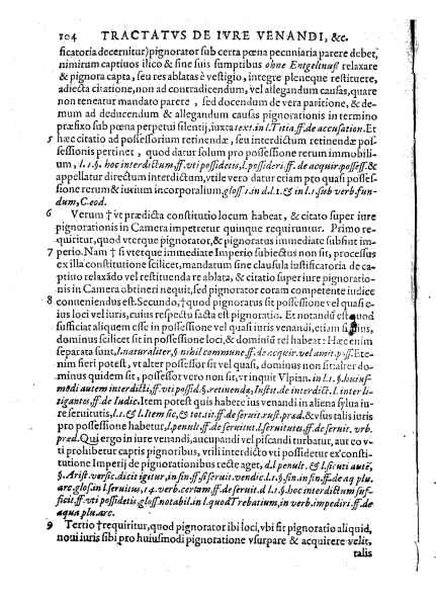 104 TRACTATVS DE IVRE VENANDI, &c.
ficatoria decernitur) pignorator sub certa pœna pecuniaria parere debet,
nimirum captiuos ilico & sine suis sumptibus ohne Entgeltnuß relaxare
& pignora capta, seu res ablatas è vestigio, integre pleneque restituere,
adiecta citatione, non ad contradicendum, vel allegandum causas, quare
non teneatur mandato parere, sed docendum de vera paritione, & de-
mum ad deducendum & allegandum causas pignorationis in termino
præfixo sub pœna perpetui silentij, iuxta text. in l. Titia. ff. de accusation. Et
5 hæc citatio ad possessorium retinendæ, seu interdictum retinendæ pos-
sessionis pertinet, quod datur solum pro possessione rerum immobili-
um, l. 1. §. hoc interdictum. ff. vti possidetis, l. possideri. ff. de acquir. possess. &
appellatur directum interdictum, vtile vero datur etiam pro quasi posses-
sione rerum & iurium incorporalium, gloss. 1. in d. l. 1. & in l. 1. sub verb. fun-
dum, C. eod.
6 Verum † vt prædicta constitutio locum habeat, & citato super iure
pignorationis in Camera impetretur quinque requiruntur. Primo re-
quiritur, quod vterque pignorator, & pignoratus immediate subsint im-
7 perio. Nam † si vterque immediate Imperio subiectus non sit, processus
ex illa constitutione scilicet, mandatum sine clausula iustificatoria de ca-
ptiuo relaxādo vel restituenda re ablata, & citatio super iure pignorationis
in Camera obtineri nequit, sed pignorator coram competente iudice
8 conueniendus est. Secundo, † quod pignoratus sit possessione vel quasi e-
ius loci vel iuris, cuius respectu facta est pignoratio. Et notandū est quod
sufficiat aliquem esse in possessione vel quasi iuris venandi, etiam si
dominus, scilicet sit in possessione loci, & dominiū rei habeat: Hæc enim
separata sunt, l. naturaliter, §. nihil commune. ff. de acquir. vel amit. poss. Ete-
nim fieri potest, vt alter possessor sit vel quasi, dominus non sit: alter do-
minus quidem sit, possessor vero non sit, vt inquit Vlpian. in l. 1. §. huius-
modi autem interdicti. ff. vti possid. §. retinenda, Instit. de interdict. l. inter li-
tigantes. ff. de Iudic. Item potest quis habere ius venandi in aliena sylva iu-
re seruitutis, l. 1. & l. Item sic, & tot. tit. ff. de seruit. rust. præd. & vsus talis iuris
pro possessione habetur, l. penult. ff. de seruitut. l. seruitutes. ff. de seruit. vrb.
præd. Qui ergo in iure venandi, aucupandi vel piscandi turbatur, aut eo v-
ti prohibetur captis pignoribus, vtili interdicto vti possidetis ex consti-
tutione Imperij de pignorationibus recte aget, d. l. penult. & l. sicuti autē,
§. Arist. versic. dicit igitur, in fin. ff. si seruit. vendic. l. 1. §. fin. in fin. ff. de aq. plu.
arc. glos. in l. seruitus, 14. verb. certam. ff. de seruit. d. l. 1. §. hoc interdictum suf-
ficit. ff. vti possidetis, gloss. notabil. in l. quod Trebatium, in verb. impediri. ff. de
aqua plu. arc.
9 Tertio † requiritur, quod pignorator ibi loci, vbi sit pignoratio aliquid,
noui iuris sibi pro huiusmodi pignoratione vsurpare & acquirere velit,
talis